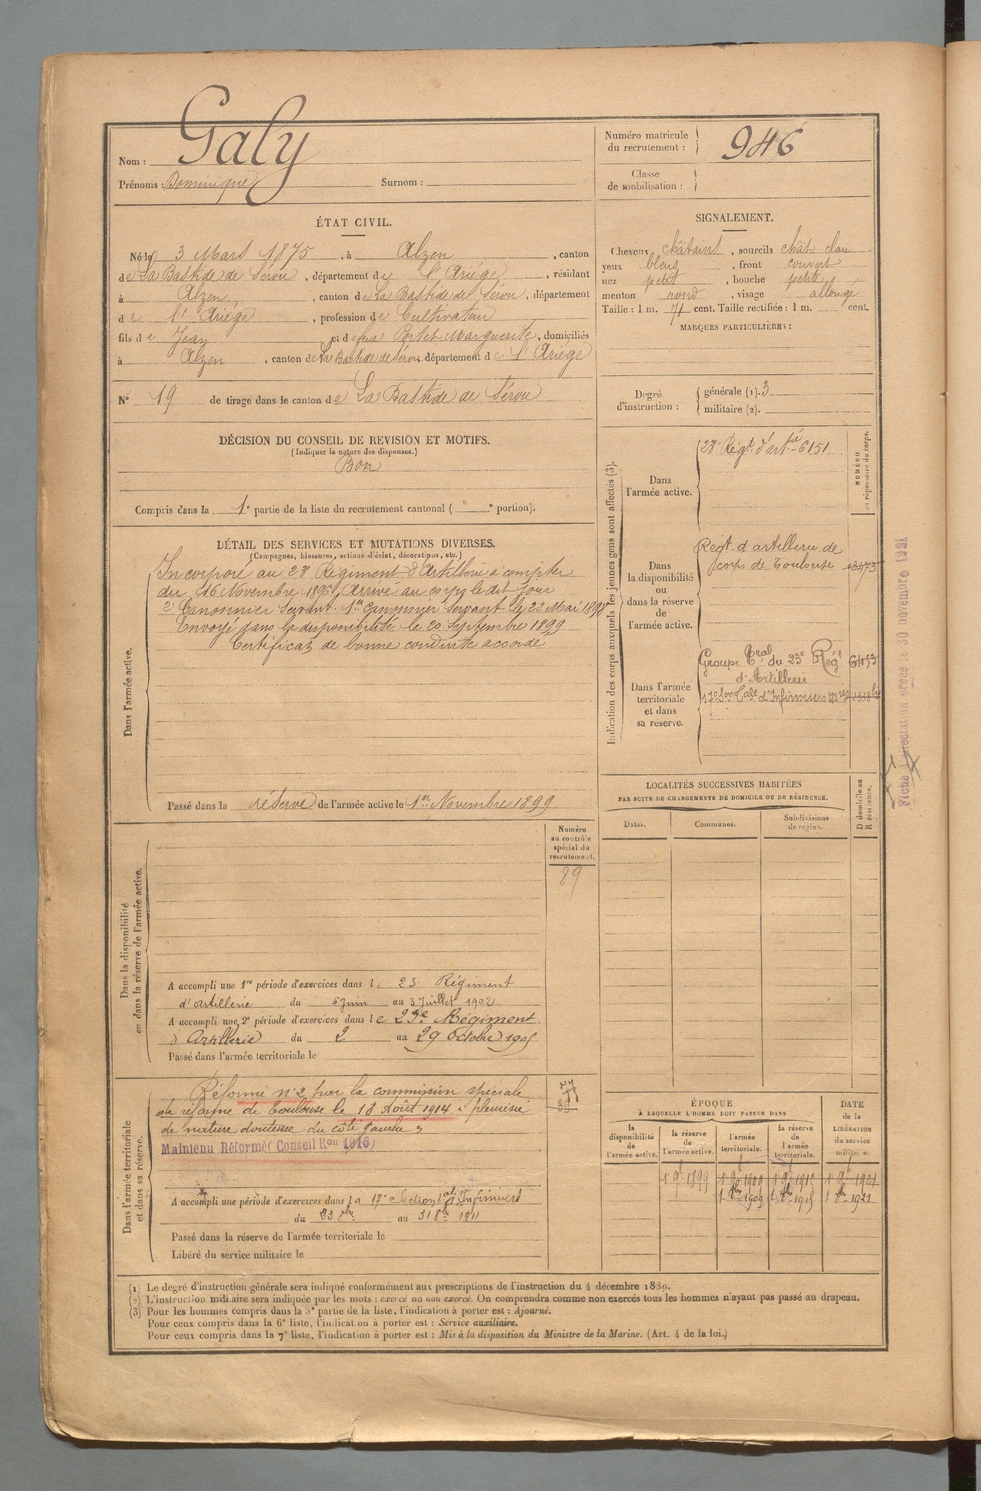 Nom : Galy
Prénoms : Dominique Surnom :
Numéro matricule du recrutement : 946
Classe de mobilisation :
ÉTAT CIVIL.
Né le 3 Mars 1875, à Alzen, canton
de La Bastide de Sérou, département de l'Ariège, résidant
à Alzen, canton de La Bastide de Sérou, département
de l'Ariège, profession de Cultivateur
fils de Jean et de feue Portet Marguerite, domiciliés
à Alzen, canton de La Bastide de Sérou, département de l'Ariège
N° 19 de tirage dans le canton de La Bastide de Sérou
SIGNALEMENT.
Cheveux châtains, sourcils chât clair
yeux bleus, front couvert
nez petit, bouche petite
menton rond, visage allongé
Taille : 1 m. 71 cent. Taille rectifiée : 1 m. cent.
MARQUES PARTICULIÈRES :
Degré d'instruction : générale (1). 3
militaire (2).
DÉCISION DU CONSEIL DE REVISION ET MOTIFS.
(Indiquer la nature des dispenses.)
Bon
Compris dans la 1e partie de la liste du recrutement cantonal ( e portion).
DÉTAIL DES SERVICES ET MUTATIONS DIVERSES.
(Campagnes, blessures, actions d'éclat, décorations, etc.)
Dans l'armée active.
Incorporé au 23e Régiment d'Artillerie à compter
du 16 Novembre 1896, Arrivé au corps le dit jour
2e Canonnier Servant. 1er Canonnier Servant le 22 Mai 1898
Envoyé dans la disponibilité le 20 Septembre 1899
Certificat de bonne conduite accordé
Passé dans la réserve de l'armée active le 1er Novembre 1899
Indication des corps auxquels les jeunes gens sont affectés (3).
NUMÉRO au répertoire du corps.
Dans l'armée active.
23e Régt d'artie 6151
Dans la disponibilité ou dans la réserve de l'armée active.
Regt d'artillerie de
corps de Toulouse
Dans l'armée territoriale et dans sa réserve.
Groupe Tral du 23e Régt
d'Artillerie
17e Son Tale d'Infirmiers mres
Fiche
30 novembre 1921
LOCALITÉS SUCCESSIVES HABITÉES
PAR SUITE DE CHANGEMENTS DE DOMICILE OU DE RÉSIDENCE.
Dates. Communes. Subdivisions de région. D domicile ou R résidence.
Dans la disponibilité ou dans la réserve de l'armée active.
Numéro au contrôle spécial du recrutement.
89
A accompli une 1re période d'exercices dans le 23e Régiment
d'artillerie du 6 Juin au 3 Juillet 1902.
A accompli une 2e période d'exercices dans le 23e Régiment
d'Artillerie du 2 au 29 Octobre 1905
Passé dans l'armée territoriale le
Dans l'armée territoriale et dans sa réserve.
Réformé n° 2 par la commission spéciale
de réforme de Toulouse le 18 Août 1914 "pleurésie
de nature douteuse du côté gauche"
Maintenu Réformé (Conseil Ron 1915)
A accompli une période d'exercices dans la 17e Section tale d'Infirmiers
du 23 8bre au 31 8bre 1911
Passé dans la réserve de l'armée territoriale le
Libéré du service militaire le
ÉPOQUE
À LAQUELLE L'HOMME DOIT PASSER DANS
la disponibilité de l'armée active. la réserve de l'armée active. l'armée territoriale. la réserve de l'armée territoriale.
DATE de la LIBÉRATION du service militaire.
(1) Le degré d'instruction générale sera indiqué conformément aux prescriptions de l'instruction du 4 décembre 1889.
(2) L'instruction militaire sera indiquée par les mots : exercé ou non exercé. On comprendra comme non exercés tous les hommes n'ayant pas passé au drapeau.
(3) Pour les hommes compris dans la 5e partie de la liste, l'indication à porter est : Ajourné.
Pour ceux compris dans la 6e liste, l'indication à porter est : Service auxiliaire.
Pour ceux compris dans la 7e liste, l'indication à porter est : Mis à la disposition du Ministre de la Marine. (Art. 4 de la loi.)